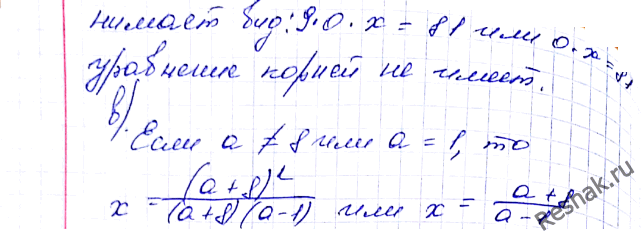 нимает вид: 9·0·x = 81 или 0·x=81
уравнение корней не имеет.
в)
Если a ≠ 8 или a = 1, то
x = (a+8)²/(a+8)(a-1) или x = a+8/a-1
Reshak.ru